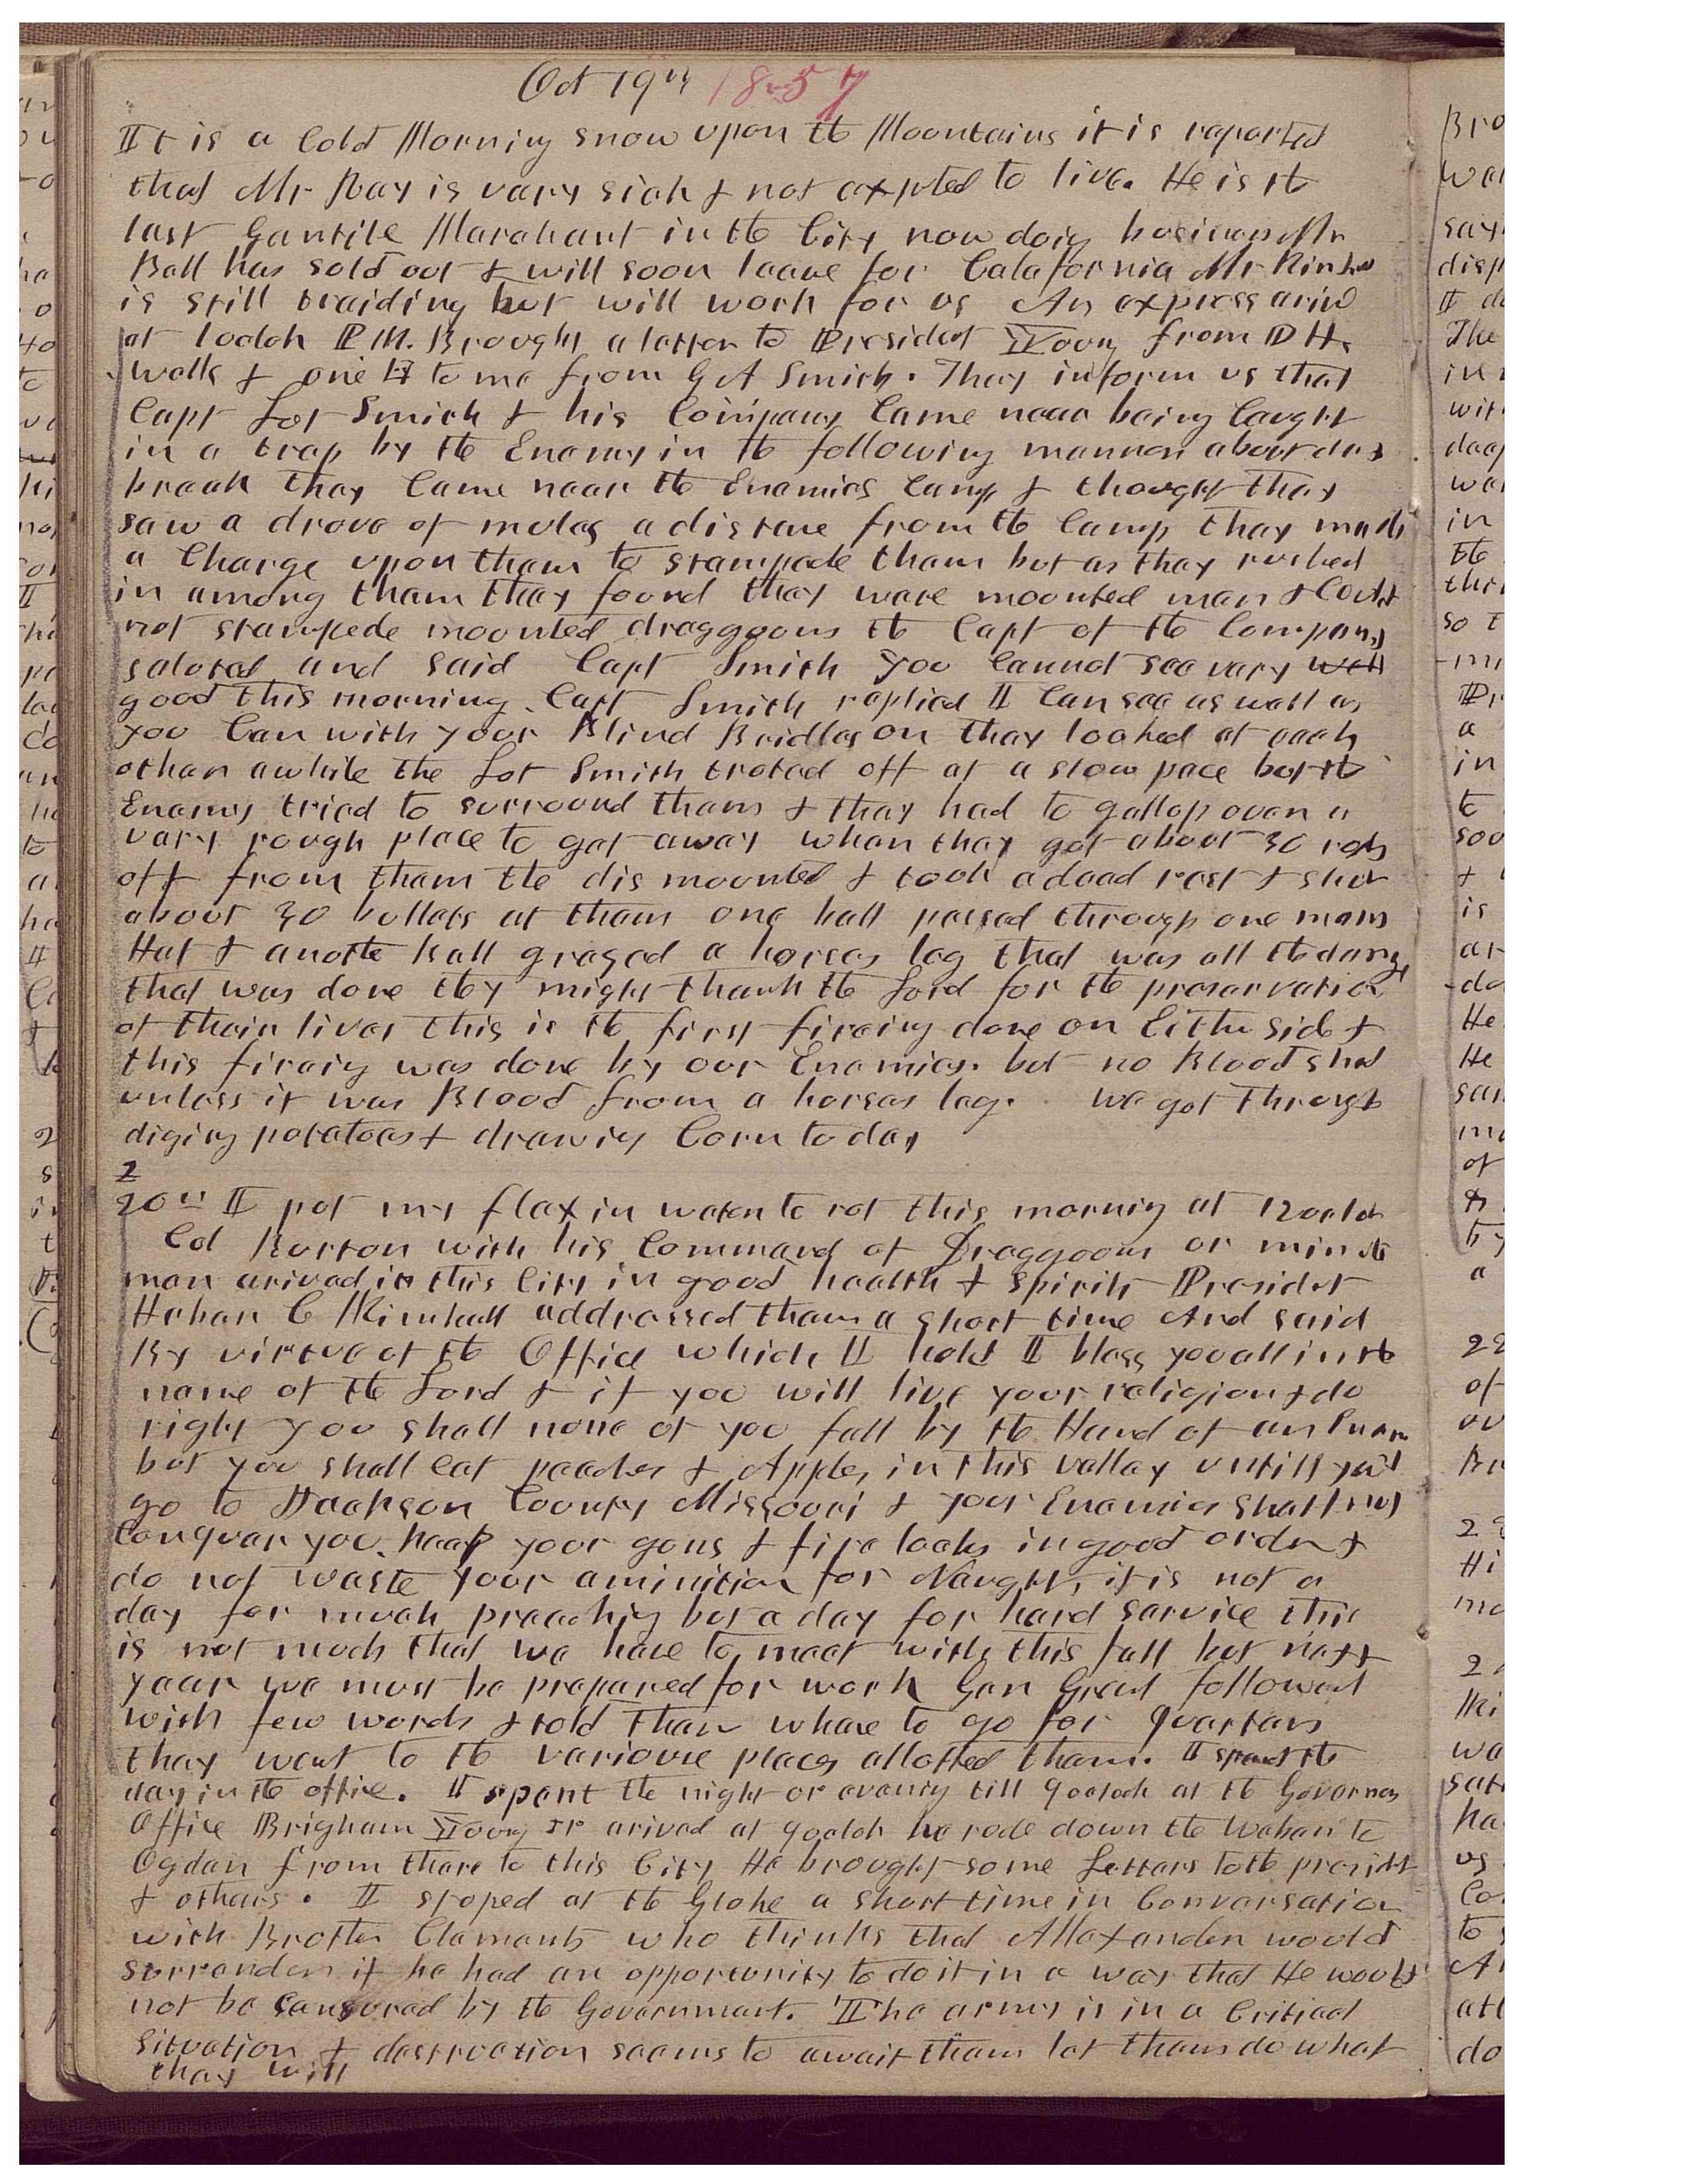 Oct 19th 1857
It is a Cold Morning snow upon the Mountains it is reported
that Mr Ray is vary sick & not expted to live. He is the
last Gentile Marchant in the City now doig business Mr
Bell has sold out & will soon leave for Calafornia Mr
is still traiding but will work for us An express arived
at 1 oclok P.M. Brought a letter to President Young from D H.
Wells & one to me from G A Smith. They inform us that
Capt Lot Smith & his Company Came near being Caught
in a trap by the Enemy in the following manner about day
break they Came near the Enemies Camp & thought they
saw a drove of mules a distane from the Camp they made
a Charge upon them to stampede them but as they rushed
in among them they found they ware mounted men & Could
not stampede mounted draggoons the Capt of the Company
saluted and said Capt Smith you Cannot see vary well
good this morning. Capt Smith replied I Can see as well as
you Can with your Blind Bridles on they looked at each
other awhile the Lot Smith troted off at a slow pace but the
Enemy tried to surround them & they had to gallop over a
vary rough place to get away when they got about 30 rods
off from them the dismounted & took a dead rest & shot
about 30 bullets at them one ball passed through one mans
Hat & anothe ball grazed a horses leg that was all the damage
that was done they might thank the Lord for the preservation
of their lives this is the first fireing done on Eithe side &
this fireig was done by our Enemies. but no Blood shed
unless it was Blood from a horses leg. We got through
diging potatoes & drawig Corn to day
20th I put my flax in water to rot this morning at 12 oclok
Col Burton with his Command of Draggoons or minute
men arived in this City in good health & spirits Presidet
Heber C Kimball addressed them a short time And said
By virtue of the Office which I hold I bless you all in the
name of the Lord & if you will live your religion & do
right you shall none of you fall by the Hand of an Enemy
but you shall eat peaches & Apples in this valley untill you
go to Jackson County Missouri & your Enemies shall not
Conquer you. keep your guns & fire locks in good order &
do not waste your aminition for Naught, it is not a
day for much preachig but a day for hard service this
is not much that we have to meet with this fall but next
year we must be prepared for work Gen Grant followed
with few words & told them whare to go for quarters
they went to the various places allotted them. I spent the
day in the office. I spent the night or evenig till 9 oclock at the Governors
Office Brigham Young Jr arived at 9 oclok he rode down the Weber to
Ogden from there to this City He brought some Letters to the presidet
& others. I stoped at the Globe a short time in Conversation
with Brother Clements who thinks that Allexander would
surrender if he had an opportunity to do it in a way that He would
not be sensured by the Government. The army is in a Critical
situation & destruction seems to await them let them do what
they will